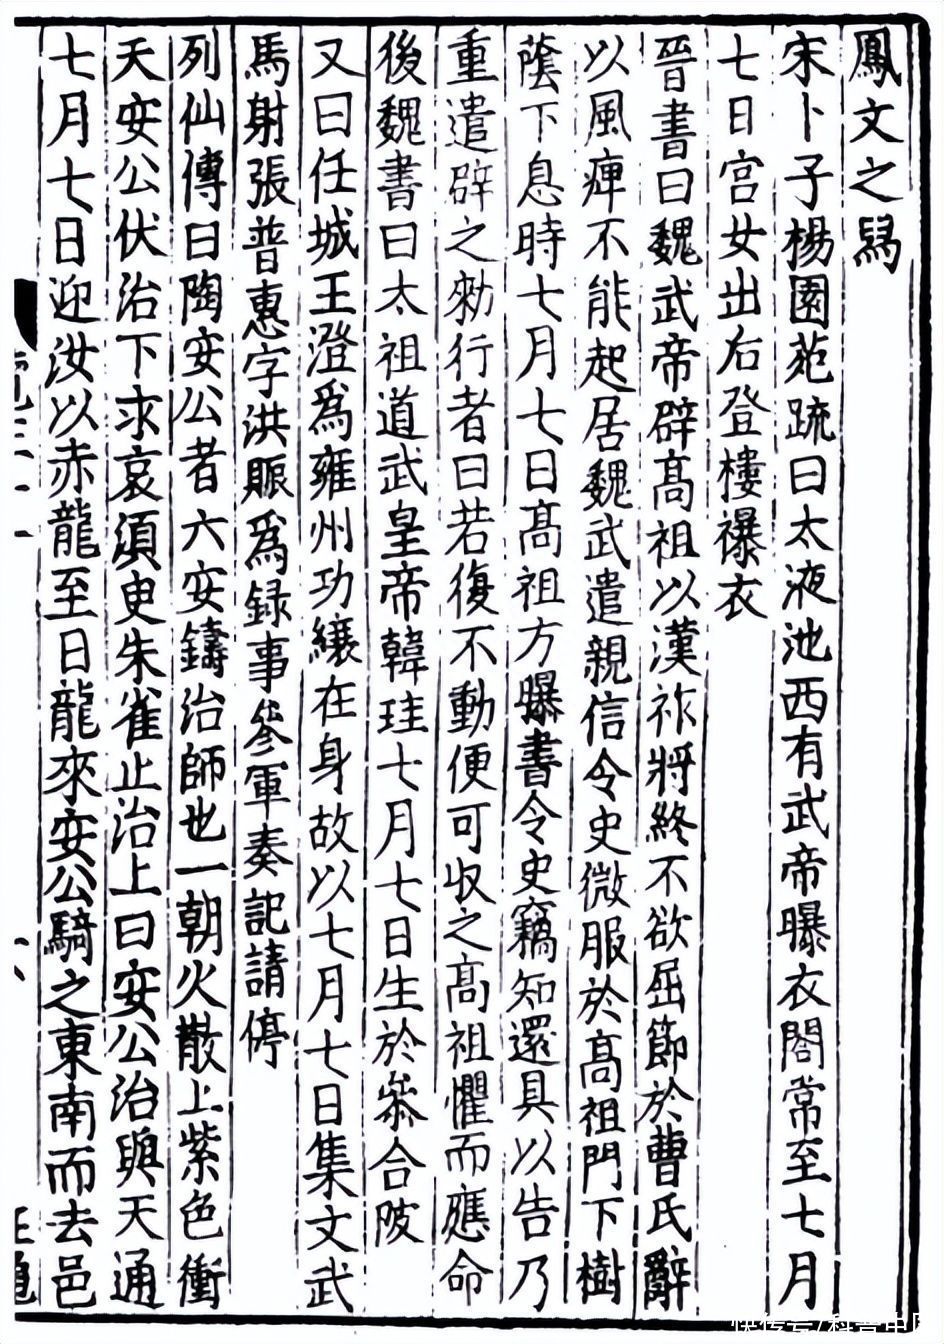 鳳文之舄
宋卜子楊園苑疏曰太液池西有武帝曝衣閣常至七月
七日宮女出右登樓㬥衣
晉書曰魏武帝辟髙祖以漢祚將終不欲屈節於曹氏辭
以風痺不能起居魏武遣親信令史微服於髙祖門下樹
蔭下息時七月七日髙祖方曝書令史竊知還具以告乃
重遣辟之勑行者曰若復不動便可収之髙祖懼而應命
後魏書曰太祖道武皇帝韓珪七月七日生於叅合陂
又曰任城王澄爲雍州功縗在身故以七月七日集文武
馬射張普惠字洪賑爲録事叅軍奏記請停
列仙傳曰陶安公者六安鑄冶師也一朝火散上紫色衝
天安公伏冶下求哀須臾朱雀止冶上曰安公冶與天通
七月七日迎汝以赤龍至日龍來安公騎之東南而去邑